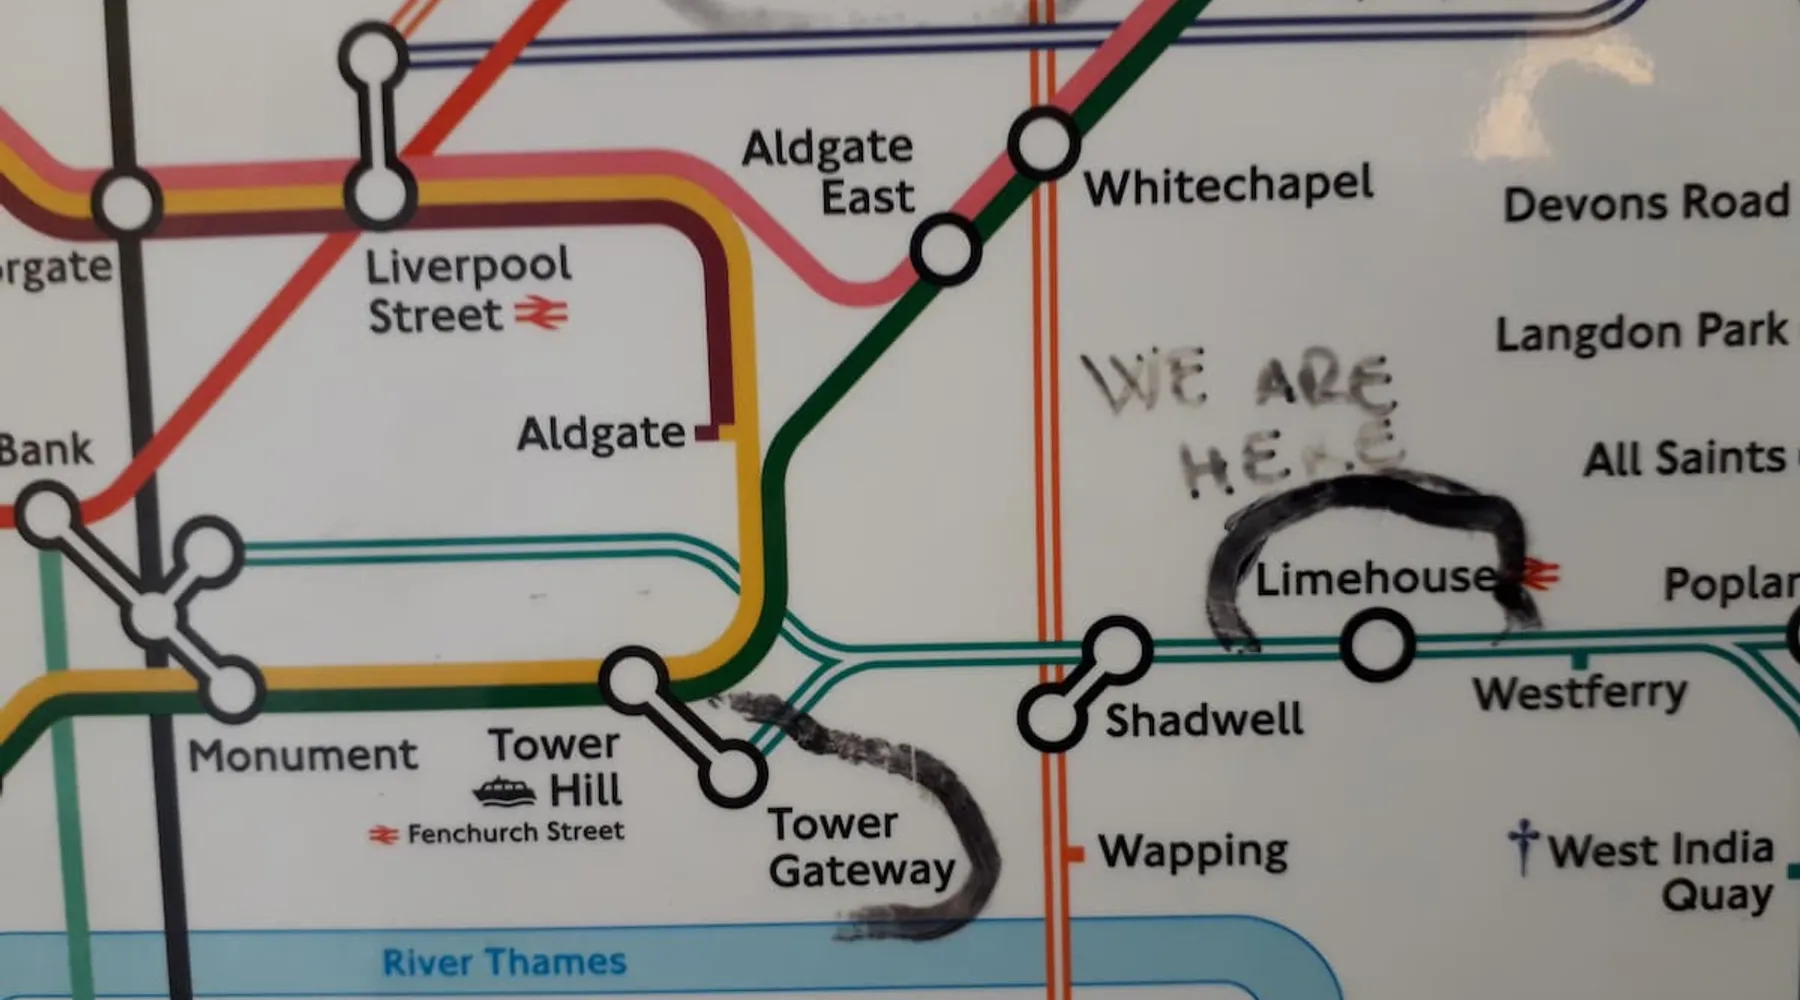 Aldgate
East
Whitechapel
Devons Road
rgate
Liverpool
Street
Langdon Park
WE ARE
HERE
Aldgate
Bank
All Saints
Limehouse
Poplar
Westferry
Shadwell
Monument
Tower
Hill
Fenchurch Street
Tower
Gateway
Wapping
West India
Quay
River Thames